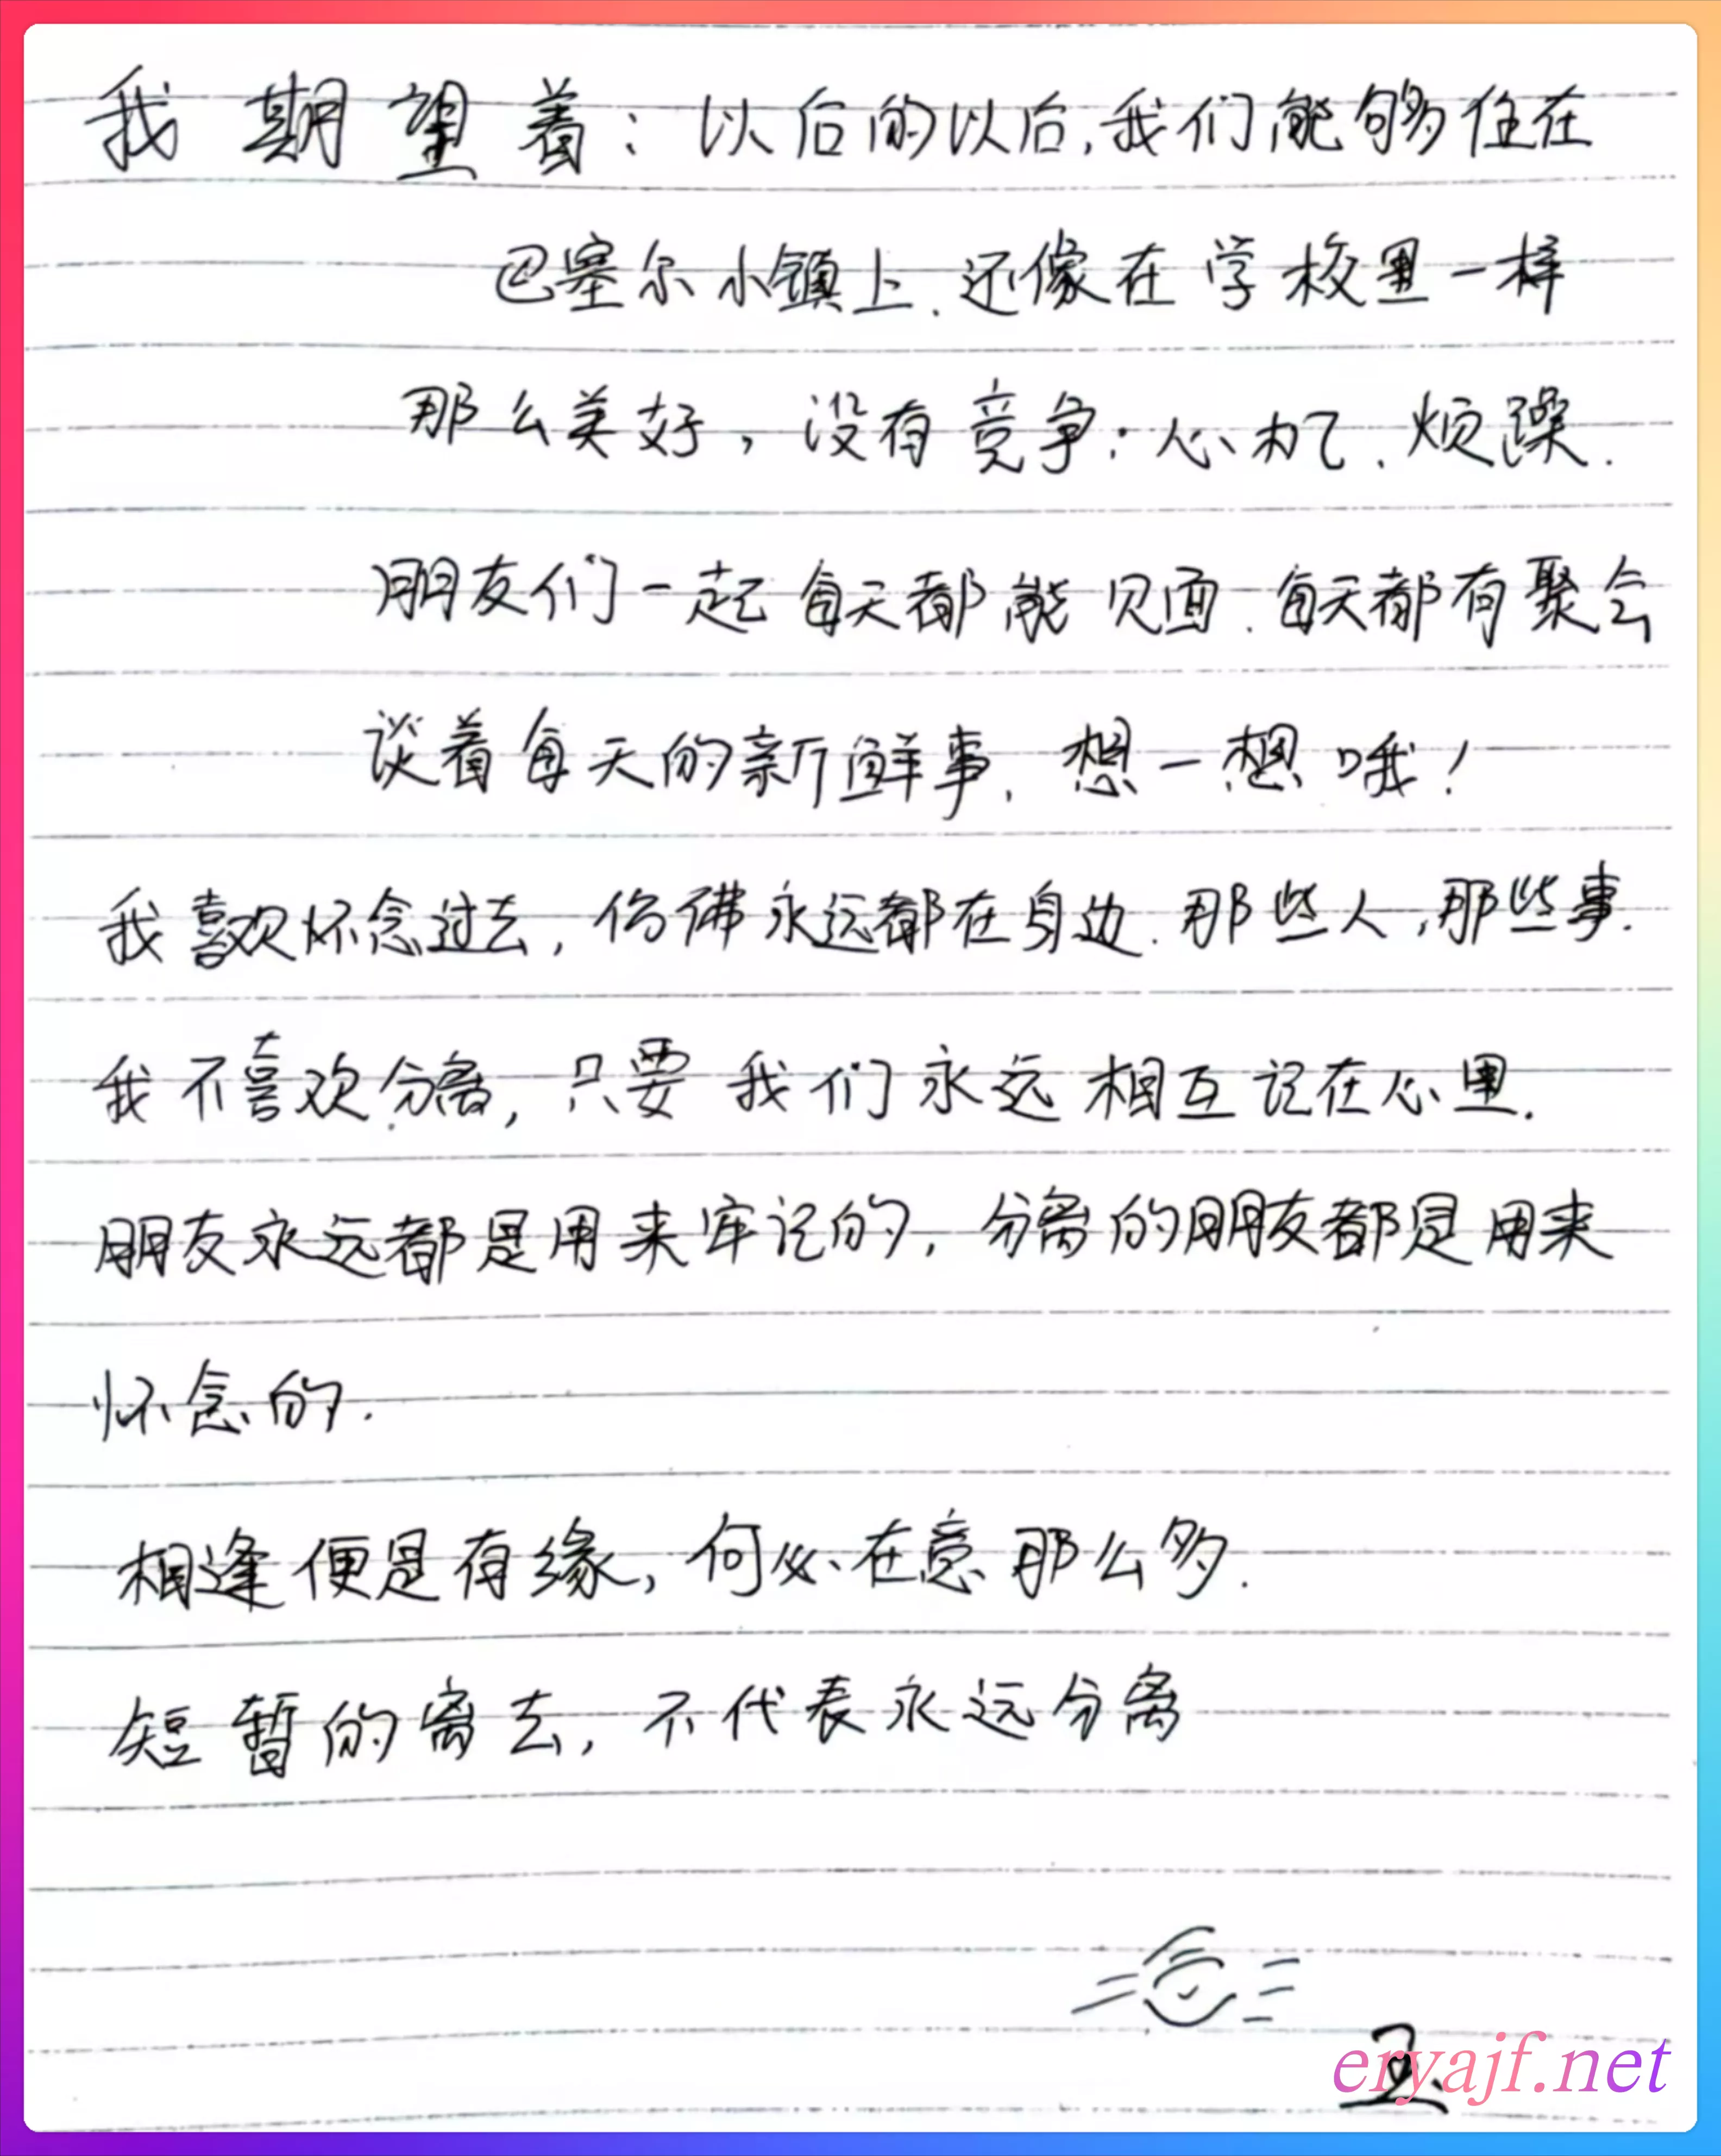 我期望着：以后的以后，我们能够住在
巴塞尔小镇上．还像在学校里一样
那么美好，没有竞争；心机、烦躁．
朋友们一起每天都能见面．每天都有聚会
谈着每天的新鲜事．想一想哦！
我喜欢怀念过去，仿佛永远都在身边．那些人，那些事．
我不喜欢分离，只要我们永远相互记在心里．
朋友永远都是用来牢记的，分离的朋友都是用来
怀念的．
相逢便是有缘，何必在意那么多．
短暂的离去，不代表永远分离
eryajf.net